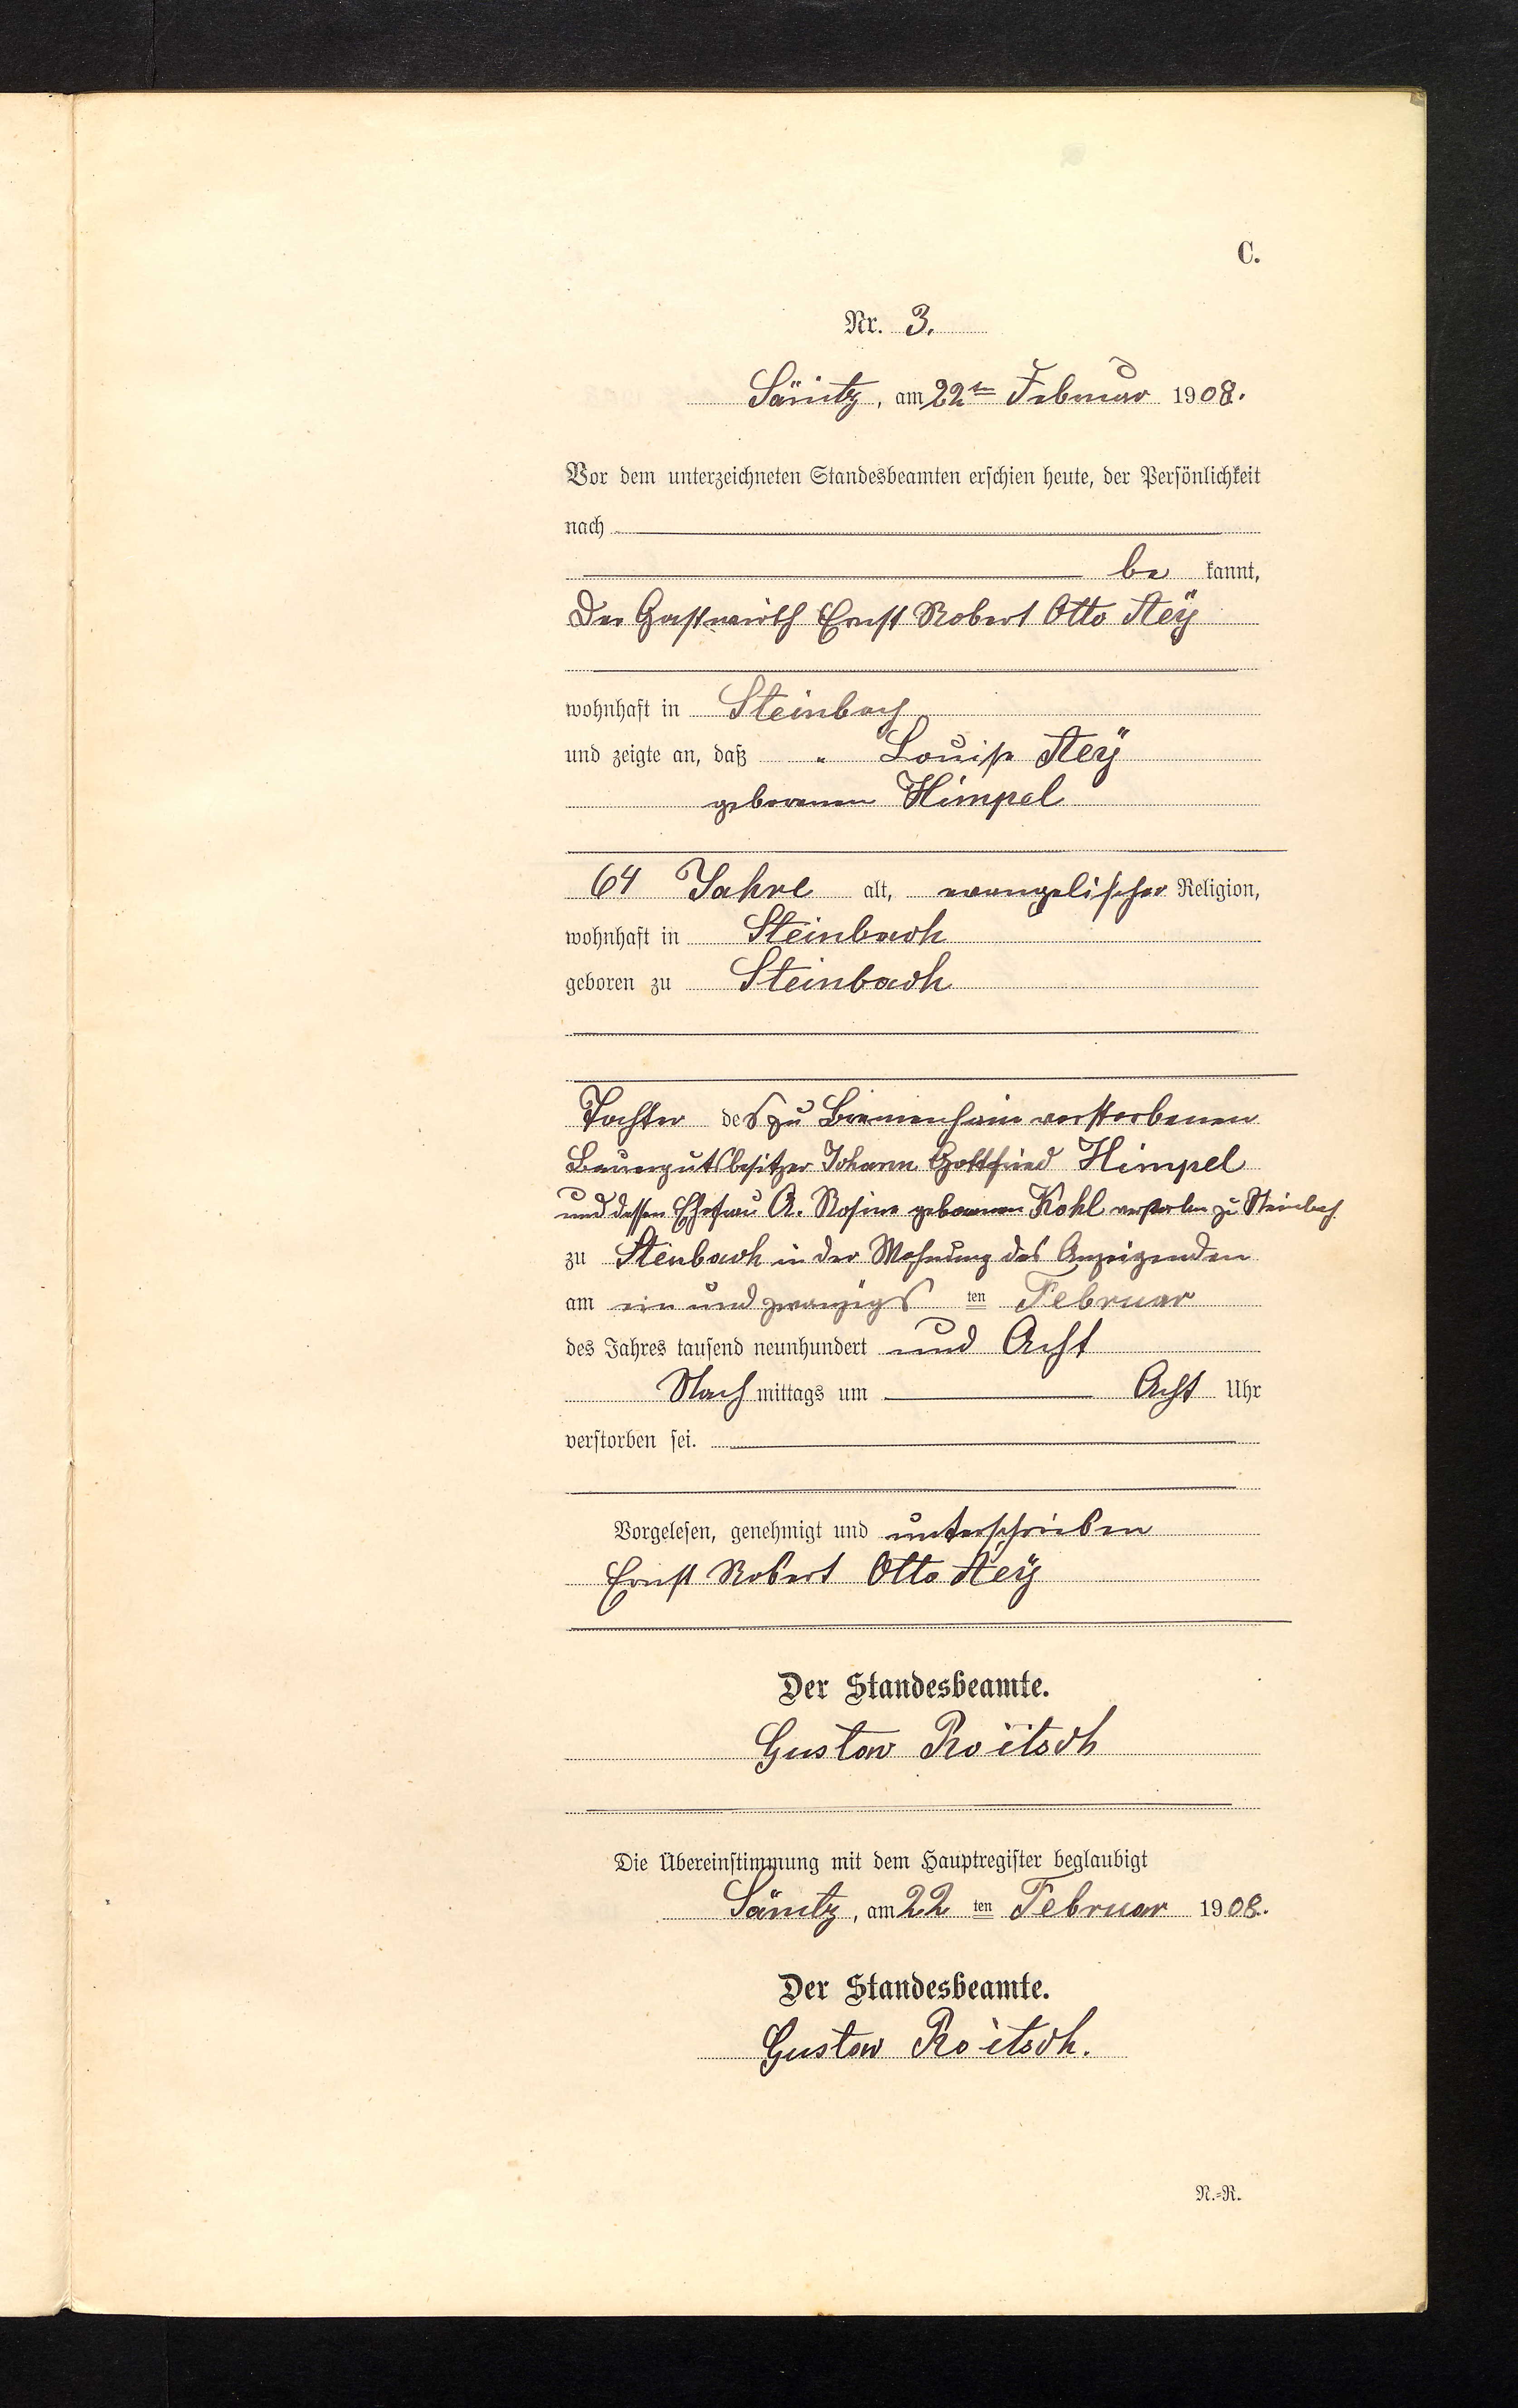 C.
Nr. 3.
Sänitz, am 22ten Februar 1908.
Vor dem unterzeichneten Standesbeamten erschien heute, der Persönlichkeit
nach
be kannt,
Der Gastwirth Ernst Robert Otto Aey
wohnhaft in Steinbach
und zeigte an, daß " Louise Aey
geborenen Himpel
64 Jahre alt, evangelischer Religion,
wohnhaft in Steinbach
geboren zu Steinbach
Tochter des zu Bremenhain verstorbenen
Bauergutsbesitzer Johann Gottfried Himpel
und dessen Ehefrau A. Rosine geborenen Kohl verstorben zu Steinbach
zu Steinbach in der Wohnung des Anzeigenden
am ein und zwanzigs ten Februar
des Jahres tausend neunhundert und Acht
Nach mittags um Acht Uhr
verstorben sei.
Vorgelesen, genehmigt und unterschrieben
Ernst Robert Otto Aey
Der Standesbeamte.
Gustav Roitsch
Die Übereinstimmung mit dem Hauptregister beglaubigt
Sänitz, am 22 ten Februar 1908.
Der Standesbeamte.
Gustav Roitsch.
N.-R.